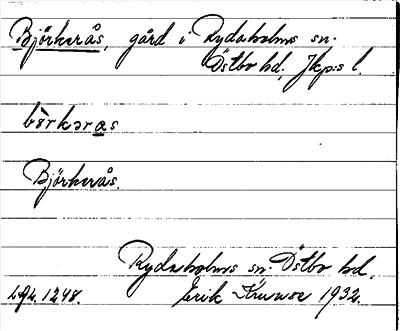 Björkerås, gård i Rydaholms sn.
Östbo hd, Jkp:s l.
bö̀rkəras
Björkerås.
Rydaholms sn. Östbo hd.
Erik 1932.
1248.